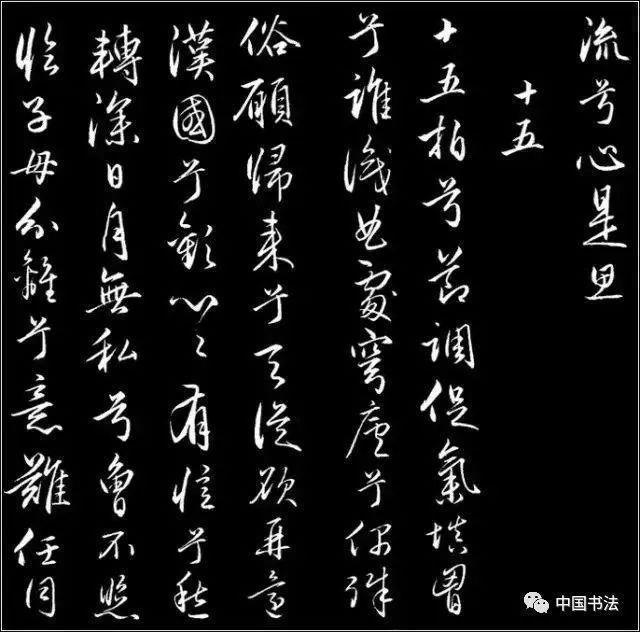 流兮心是思
十五
十五拍兮節調促氣填胷
兮誰識曲處穹廬兮偶殊
俗願歸來兮天從欲再還
漢國兮歡心〻有懷兮愁
轉深日月無私兮曾不照
臨子母分離兮意難任同
中国书法